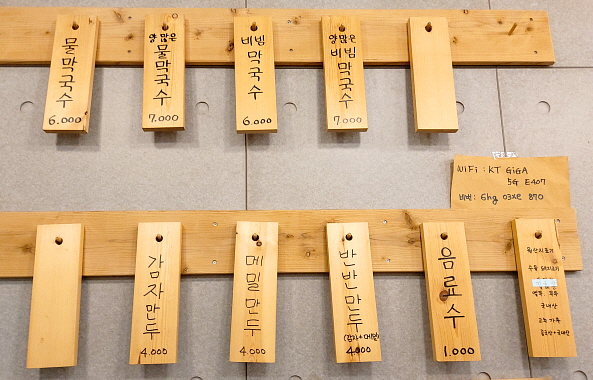 물막국수
6.000
양많은
물막국수
7.000
비빔
막국수
6.000
양많은
비빔
막국수
7.000
WiFi : KT GiGA
5G E407
비번 : 6hg 03xe 870
감자만두
4.000
메밀만두
4.000
반반만두
(감자+메밀)
4.000
음료수
1.000
원산지표기
국내산
고추가루
중국산+국내산